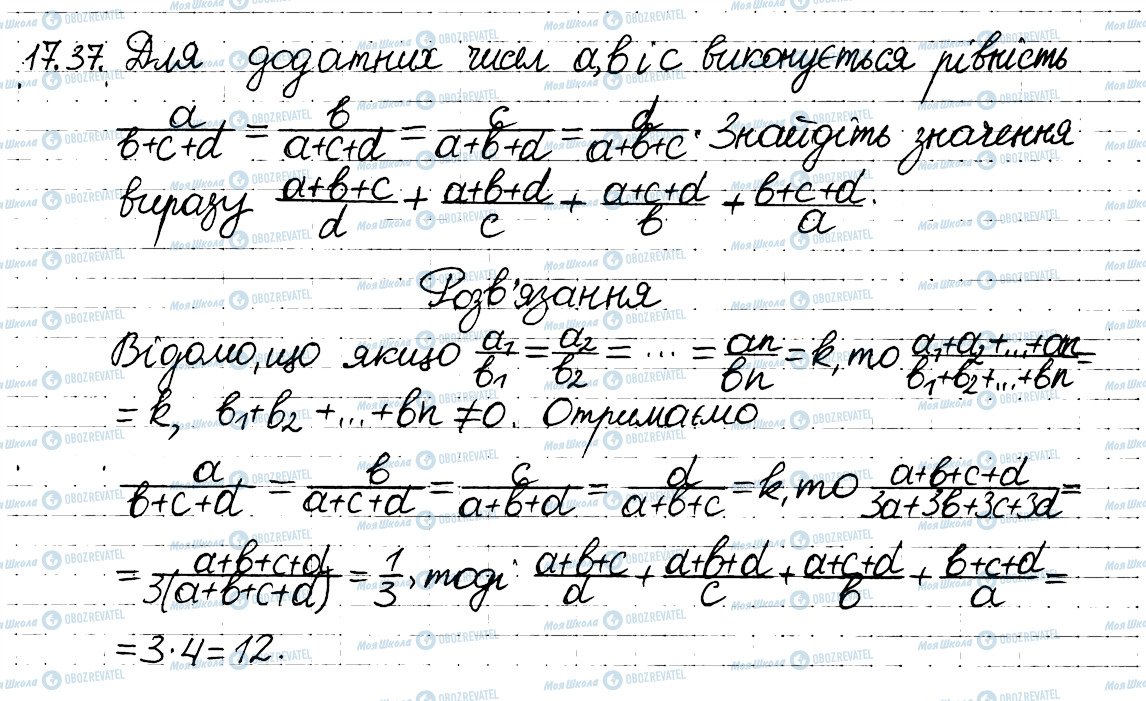 17.37. Для додатних чисел а,в і с виконується рівність
a/(в+c+d) = в/(a+c+d) = c/(a+в+d) = d/(a+в+c). Знайдіть значення
виразу (a+в+c)/d + (a+в+d)/c + (a+c+d)/в + (в+c+d)/a.
Розв'язання
Відомо, що якщо a₁/в₁ = a₂/в₂ = ... = an/вn = k, то (a₁+a₂+...+an)/(в₁+в₂+...+вn) =
= k, в₁+в₂+...+вn ≠ 0. Отримаємо
a/(в+c+d) = в/(a+c+d) = c/(a+в+d) = d/(a+в+c) = k, то (a+в+c+d)/(3a+3в+3c+3d) =
= (a+в+c+d)/(3(a+в+c+d)) = 1/3, тоді (a+в+c)/d + (a+в+d)/c + (a+c+d)/в + (в+c+d)/a =
= 3·4 = 12.